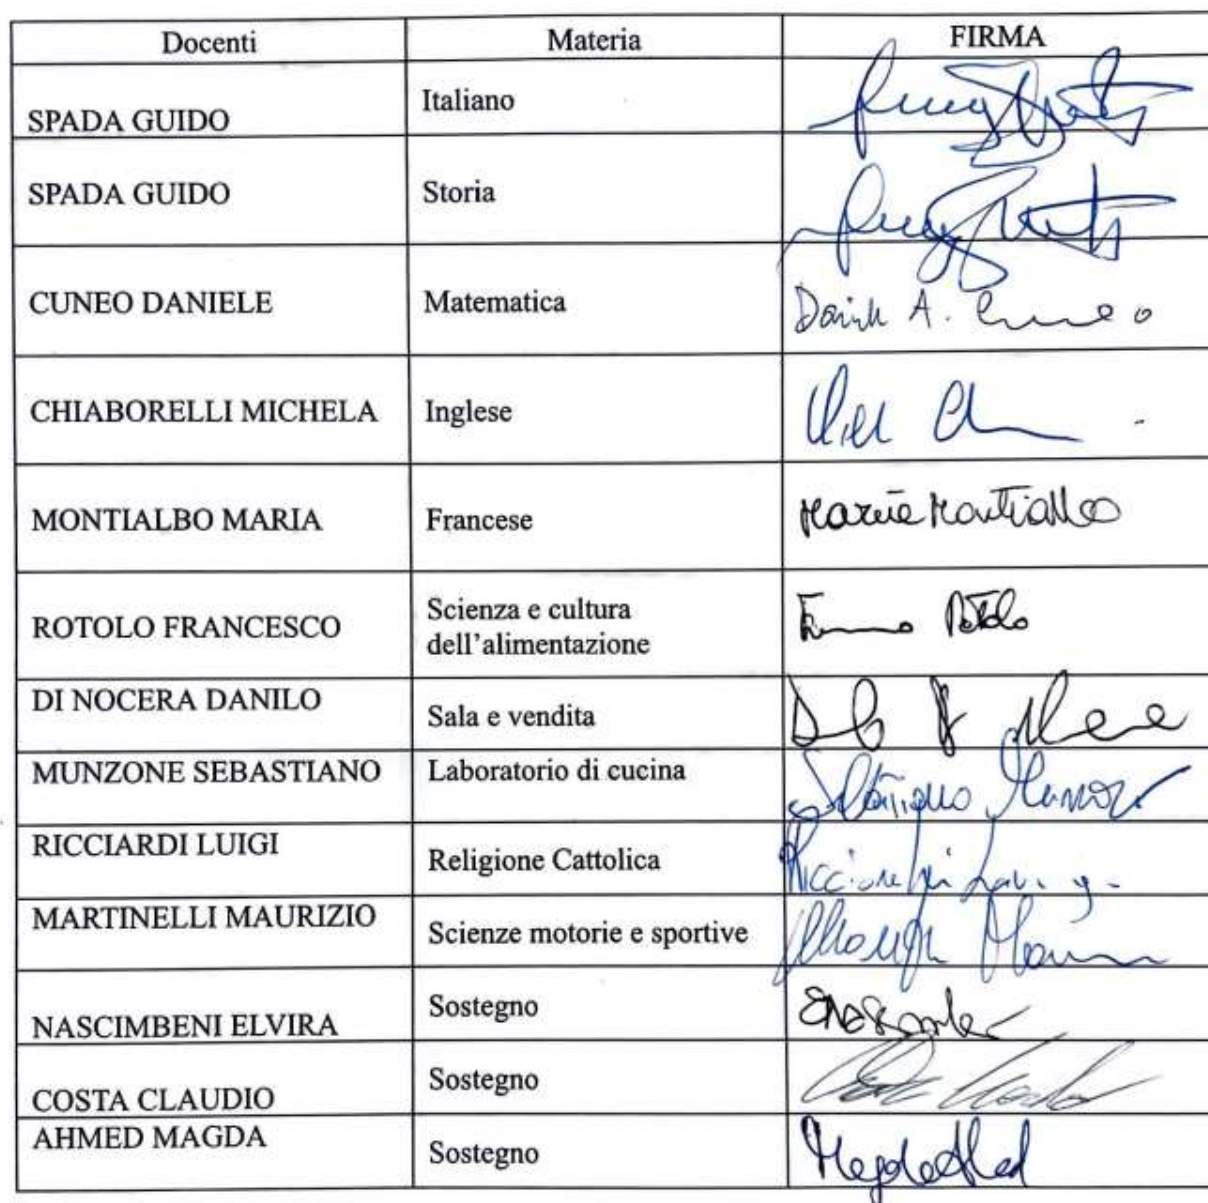 Docenti Materia FIRMA
SPADA GUIDO Italiano
SPADA GUIDO Storia
CUNEO DANIELE Matematica Daniele A. Cuneo
CHIABORELLI MICHELA Inglese
MONTIALBO MARIA Francese Maria Montialbo
ROTOLO FRANCESCO Scienza e cultura
dell'alimentazione Rotolo
DI NOCERA DANILO Sala e vendita
MUNZONE SEBASTIANO Laboratorio di cucina
RICCIARDI LUIGI Religione Cattolica
MARTINELLI MAURIZIO Scienze motorie e sportive
NASCIMBENI ELVIRA Sostegno
COSTA CLAUDIO Sostegno
AHMED MAGDA Sostegno Magda Ahmed